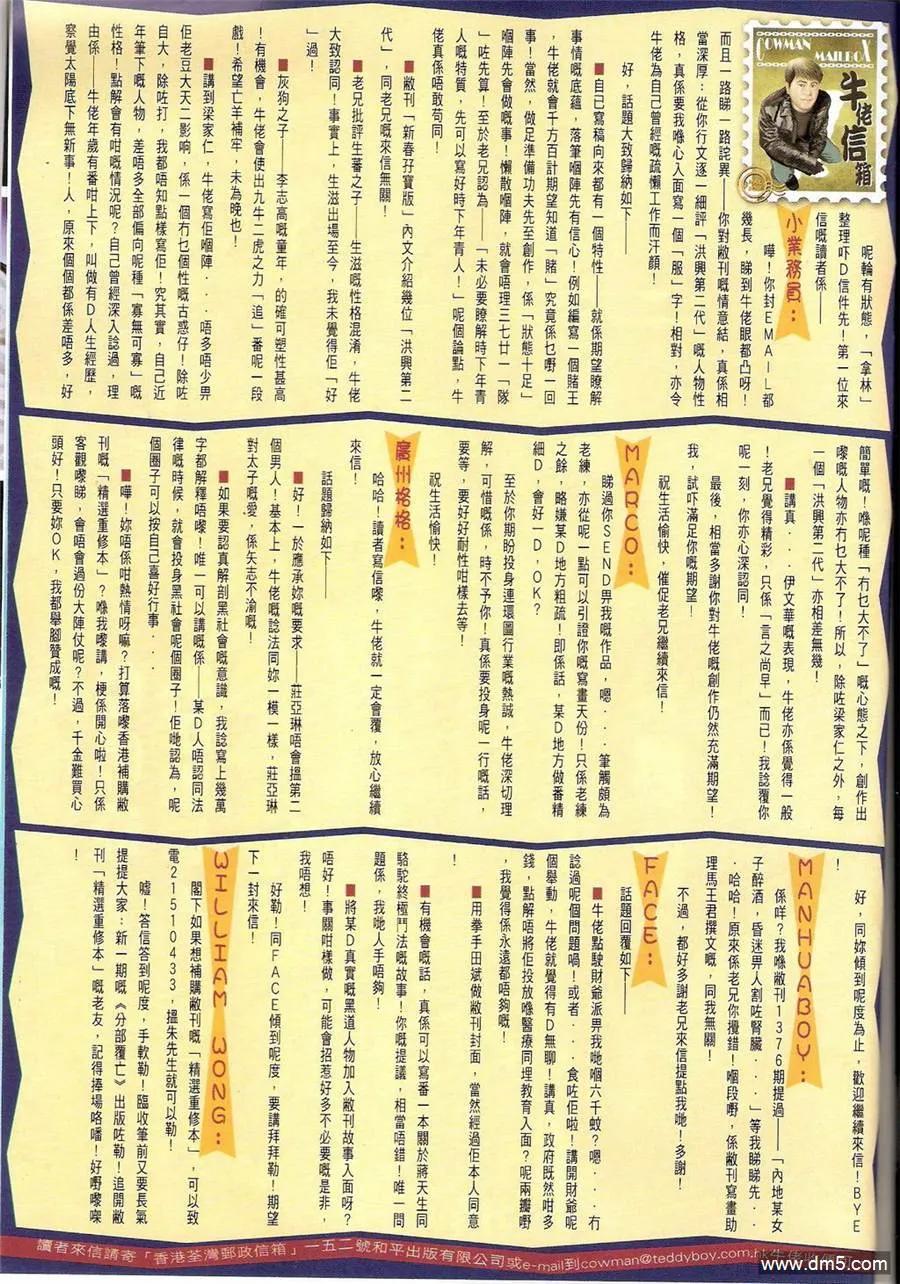 COWMAN
MAILBOX
牛佬信箱
呢輪有狀態，「拿林」
整理吓D信件先！第一位來
信嘅讀者係——
小業務員：
嘩！你封EMAIL都
幾長，睇到牛佬眼都凸呀！
而且一路睇一路詫異——你對敝刊嘅情意結，真係相
當深厚：從你行文逐一細評「洪興第二代」嘅人物性
格，真係要我喺心入面寫一個「服」字！相對，亦令
牛佬為自己曾經嘅疏懶工作而汗顏！
好，話題大致歸納如下——
■自己寫稿向來都有一個特性——就係期望瞭解
事情嘅底蘊，落筆嗰陣先有信心！例如編寫一個賭王
，牛佬就會千方百計期望知道「賭」究竟係乜嘢一回
事！當然，做足準備功夫先至創作，係「狀態十足」
嗰陣先會做嘅事！懶散嗰陣，就會唔理三七廿一「隊
」咗先算！至於老兄認為——「未必要瞭解時下年青
人嘅特質，先可以寫好時下年青人！」呢個論點，牛
佬真係唔敢苟同！
■敝刊「新春孖寶版」內文介紹幾位「洪興第二
代」，同老兄嘅來信無關！
■老兄批評生蕃之子——生滋嘅性格混淆，牛佬
大致認同！事實上，生滋出場至今，我未覺得佢「好
」過！
■灰狗之子——李志高嘅童年，的確可塑性甚高
！有機會，牛佬會使出九牛二虎之力「追」番呢一段
戲！希望亡羊補牢，未為晚也！
■講到梁家仁，牛佬寫佢嗰陣．．．唔多唔少畀
佢老豆大天二影响，係一個冇乜個性嘅古惑仔！除咗
自大，除咗打，我都唔知點樣寫佢！究其實，自己近
年筆下嘅人物，差唔多全部偏向呢種「寡無可寡」嘅
性格！點解會有咁嘅情況呢？自己曾經深入諗過，理
由係——牛佬年歲有番咁上下，叫做有D人生經歷，
察覺太陽底下無新事！人，原來個個都係差唔多，好
簡單嘅！喺呢種「冇乜大不了」嘅心態之下，創作出
嚟嘅人物亦冇乜大不了！所以，除咗梁家仁之外，每
一個「洪興第二代」亦相差無幾！
■講真．．．伊文華嘅表現，牛佬亦係覺得一般
！老兄覺得精彩，只係「言之尚早」而已！我諗覆你
呢一刻，你亦心深認同！
最後，相當多謝你對牛佬嘅創作仍然充滿期望！
我，試吓滿足你嘅期望！
祝生活愉快，催促老兄繼續來信！
MARCO：
睇過你SEND畀我嘅作品，嗯．．．筆觸頗為
老練，亦從呢一點可以引證你嘅寫畫天份！只係老練
之餘，略嫌某D地方粗疏！即係話，某D地方做番精
細D，會好一D，OK？
至於你期盼投身連環圖行業嘅熱誠，牛佬深切理
解，可惜嘅係，時不予你！真係要投身呢一行嘅話，
要等，要好好耐性咁樣去等！
祝生活愉快！
廣州格格：
哈哈！讀者寫信嚟，牛佬就一定會覆，放心繼續
來信！
話題歸納如下——
■好！一於應承妳嘅要求——莊亞琳唔會搵第二
個男人！基本上，牛佬嘅諗法同妳一模一樣，莊亞琳
對太子嘅愛，係矢志不渝嘅！
■如果要認真解剖黑社會嘅意識，我諗寫上幾萬
字都解釋唔嚟！唯一可以講嘅係——某D人唔認同法
律嘅時候，就會投身黑社會呢個圈子！佢哋認為，呢
個圈子可以按自己喜好行事．．．
■嘩！妳唔係咁熱情呀嘛？打算落嚟香港補購敝
刊嘅「精選重修本」？喺我嚟講，梗係開心啦！只係
客觀嚟睇，會唔會過份大陣仗呢？不過，千金難買心
頭好！只要妳OK，我都舉腳贊成嘅！
好，同妳傾到呢度為止，歡迎繼續來信！BYE
！
MANHUABOY：
係咩？我喺敝刊1376期提過——「內地某女
子醉酒，昏迷畀人割咗腎臟．．．」等我睇睇先．．
．哈哈！原來係老兄你攪錯！嗰段嘢，係敝刊寫畫助
理馬王君撰文嘅，同我無關！
不過，都好多謝老兄來信提點我哋！多謝！
FACE：
話題回覆如下——
■牛佬點駛財爺派畀我哋嗰六千蚊？嗯．．．冇
諗過呢個問題喎！或者．．．食咗佢啦！講開財爺呢
個舉動，牛佬就覺得有D無聊！講真，政府既然咁多
錢，點解唔將佢投放喺醫療同埋教育入面？呢兩瓣嘢
，我覺得係永遠都唔夠嘅！
■用拳手田斌做敝刊封面，當然經過佢本人同意
！
■有機會嘅話，真係可以寫番一本關於蔣天生同
駱駝終極鬥法嘅故事！你嘅提議，相當唔錯！唯一問
題係，我哋人手唔夠！
■將某D真實嘅黑道人物加入敝刊故事入面呀？
唔好！事關咁樣做，可能會招惹好多不必要嘅是非，
我唔想！
好勒！同FACE傾到呢度，要講拜拜勒！期望
下一封來信！
WILLIAM WONG：
閣下如果想補購敝刊嘅「精選重修本」，可以致
電21510433，搵朱先生就可以勒！
噓！答信答到呢度，手軟勒！臨收筆前又要長氣
提提大家：新一期嘅《分部覆亡》出版咗勒！追開敝
刊「精選重修本」嘅老友，記得捧場咯噃！好嘢嚟㗎
！
讀者來信請寄「香港荃灣郵政信箱」一五二號和平出版有限公司或e-mail到cowman@teddyboy.com.hk
www.dm5.com